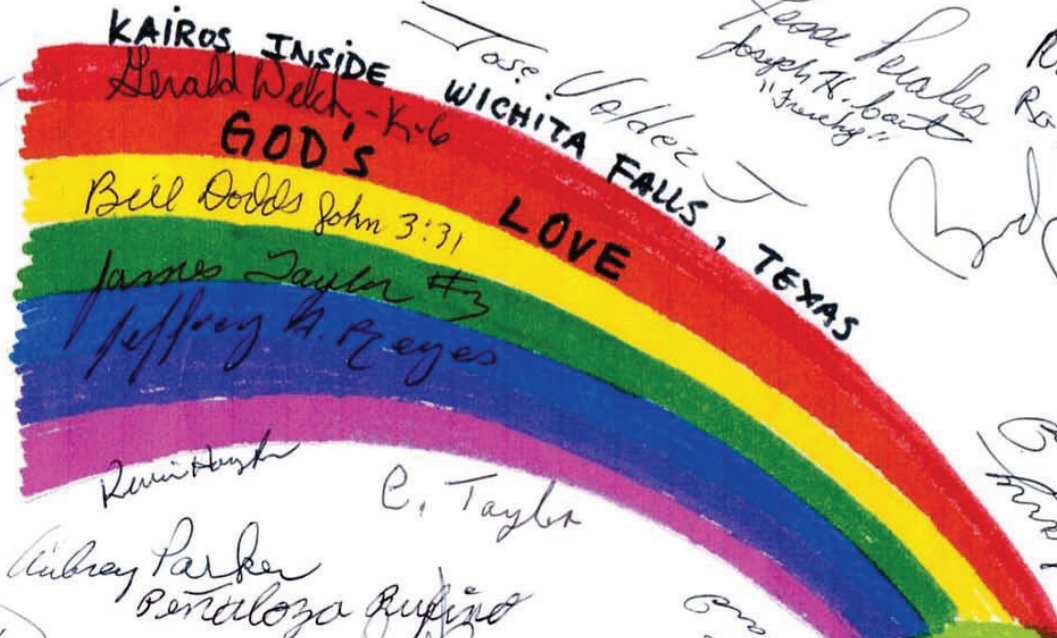 KAIROS INSIDE WICHITA FALLS, TEXAS
Gerald Welch - K-6
GOD'S LOVE
Bill Dodds John 3:31
James Taylor #3
Jeffrey A. Reyes
Jose Valdez J
Jesse Perales
Joseph H.
"Frenchy"
C. Taylor
Aubrey Parker
Peñaloza Rufino